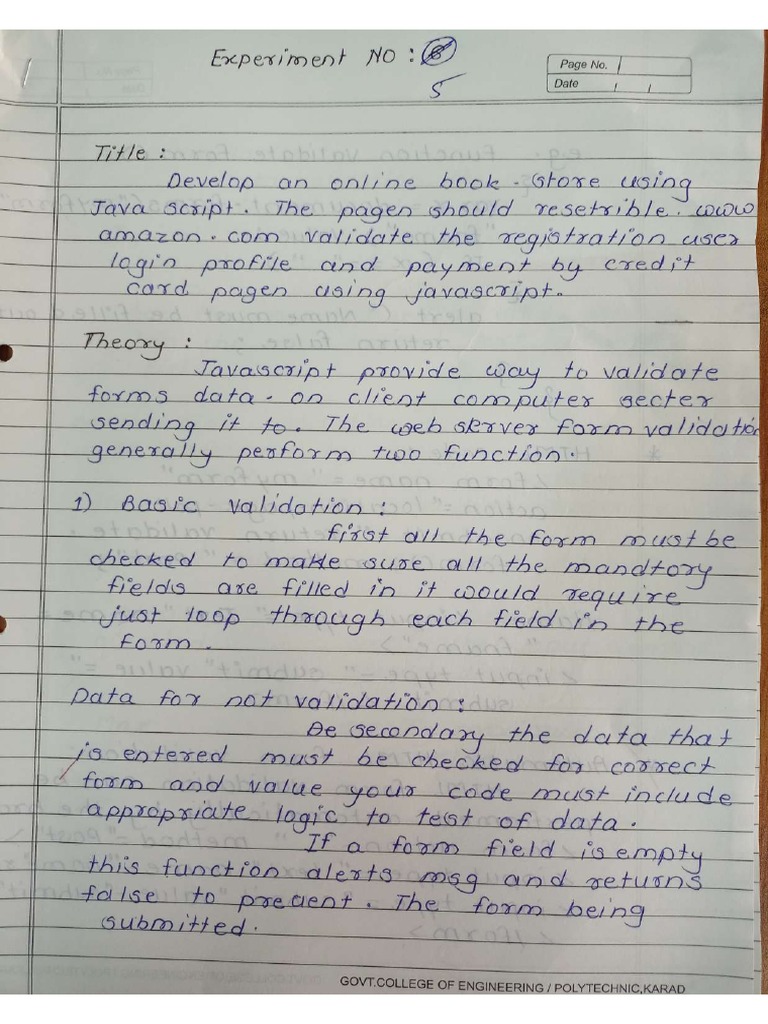 Experiment NO : 8
5
Page No.
Date / /
Title :
Develop an online book - store using
Java script. The pagen should resetrible. www
amazon.com validate the registration user
login profile and payment by credit
card pagen using javascript.
Theory :
Javascript provide way to validate
forms data - on client computer secter
sending it to. The web server form validation
generally perform two function.
1) Basic validation :
first all the form must be
checked to make sure all the mandtory
fields are filled in it would require
just loop through each field in the
form.
Data for not validation :
Be secondary the data that
is entered must be checked for correct
form and value your code must include
appropriate logic to test of data.
If a form field is empty
this function alerts msg and returns
false to preuent. The form being
submitted.
GOVT.COLLEGE OF ENGINEERING / POLYTECHNIC,KARAD